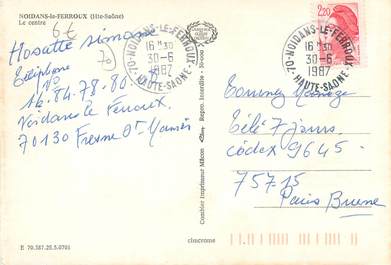 NOIDANS-le-FERROUX (Hte-Saône)
Le centre
6€
70
Hosatte Simone
Téléphone
N°
16.84.78.80.
Noidans le Ferroux
70130 Fresne St Mamès
70-NOIDANS-LE-FERROUX
16H30
30-6
1987
HAUTE-SAONE
70-NOIDANS-LE-FERROUX
16H30
30-6
1987
HAUTE-SAONE
2,20
Télé 7 Jours
Códex 9645
757-15
Paris Brune
Combier Imprimeur Mâcon
Repon. Interdite
cimcrome
E 70.387.25.5.0701